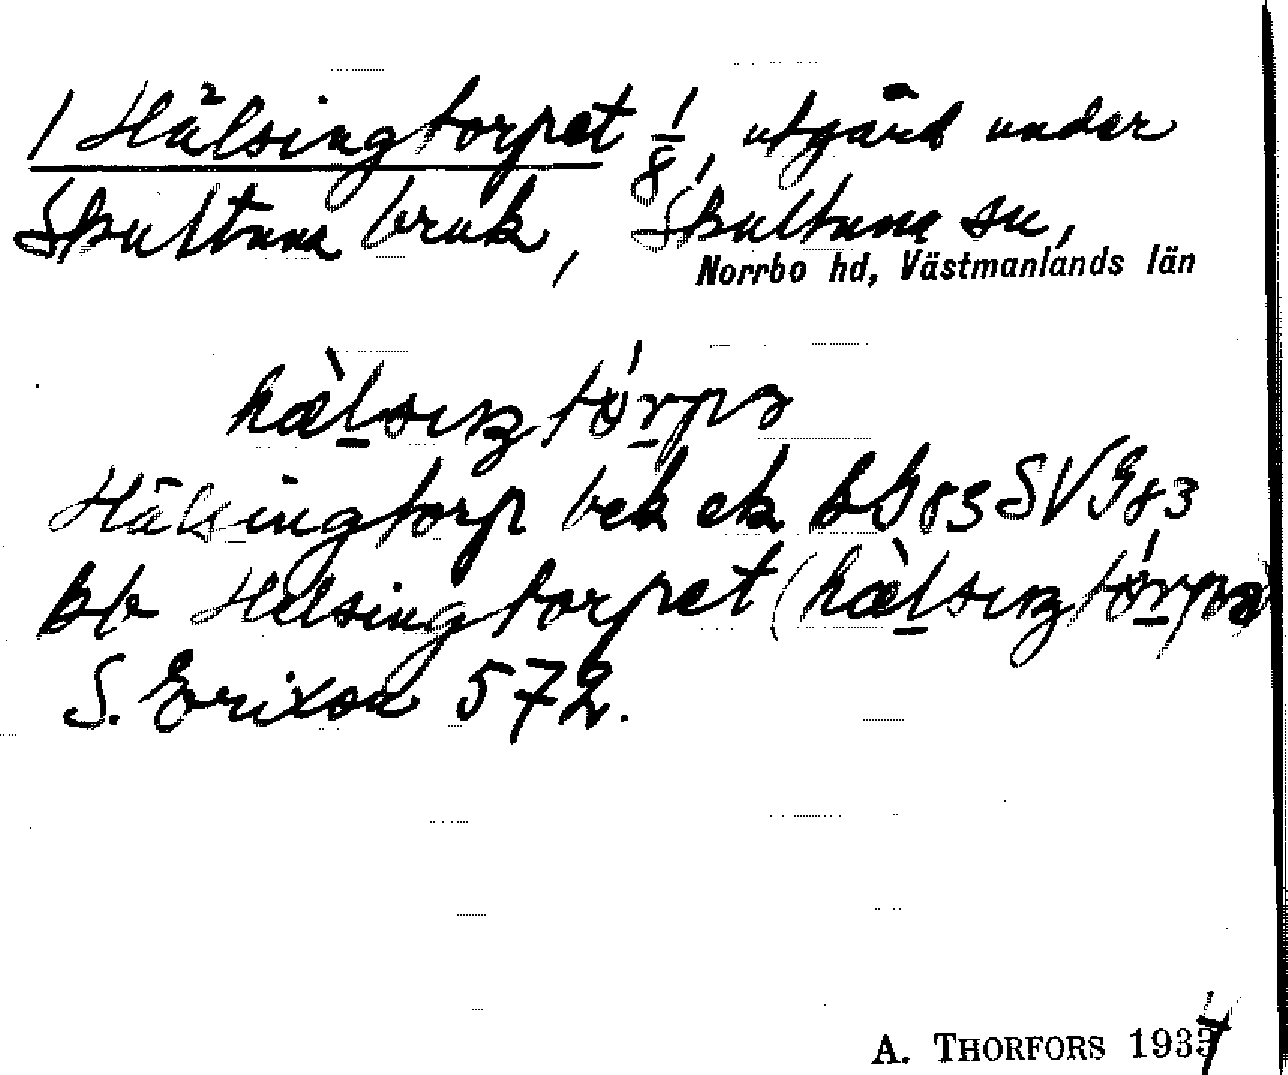 1 Hälsingtorpet 1/8, utgård under
Skultuna bruk, Skultuna sn,
Norrbo hd, Västmanlands län
hæ̀lsıŋtórpə
Hälsingtorp bek ek GG83 SVG83
bb Helsingtorpet (hæ̀lsıŋtórpə)
S. Erixon 572.
A. THORFORS 1934